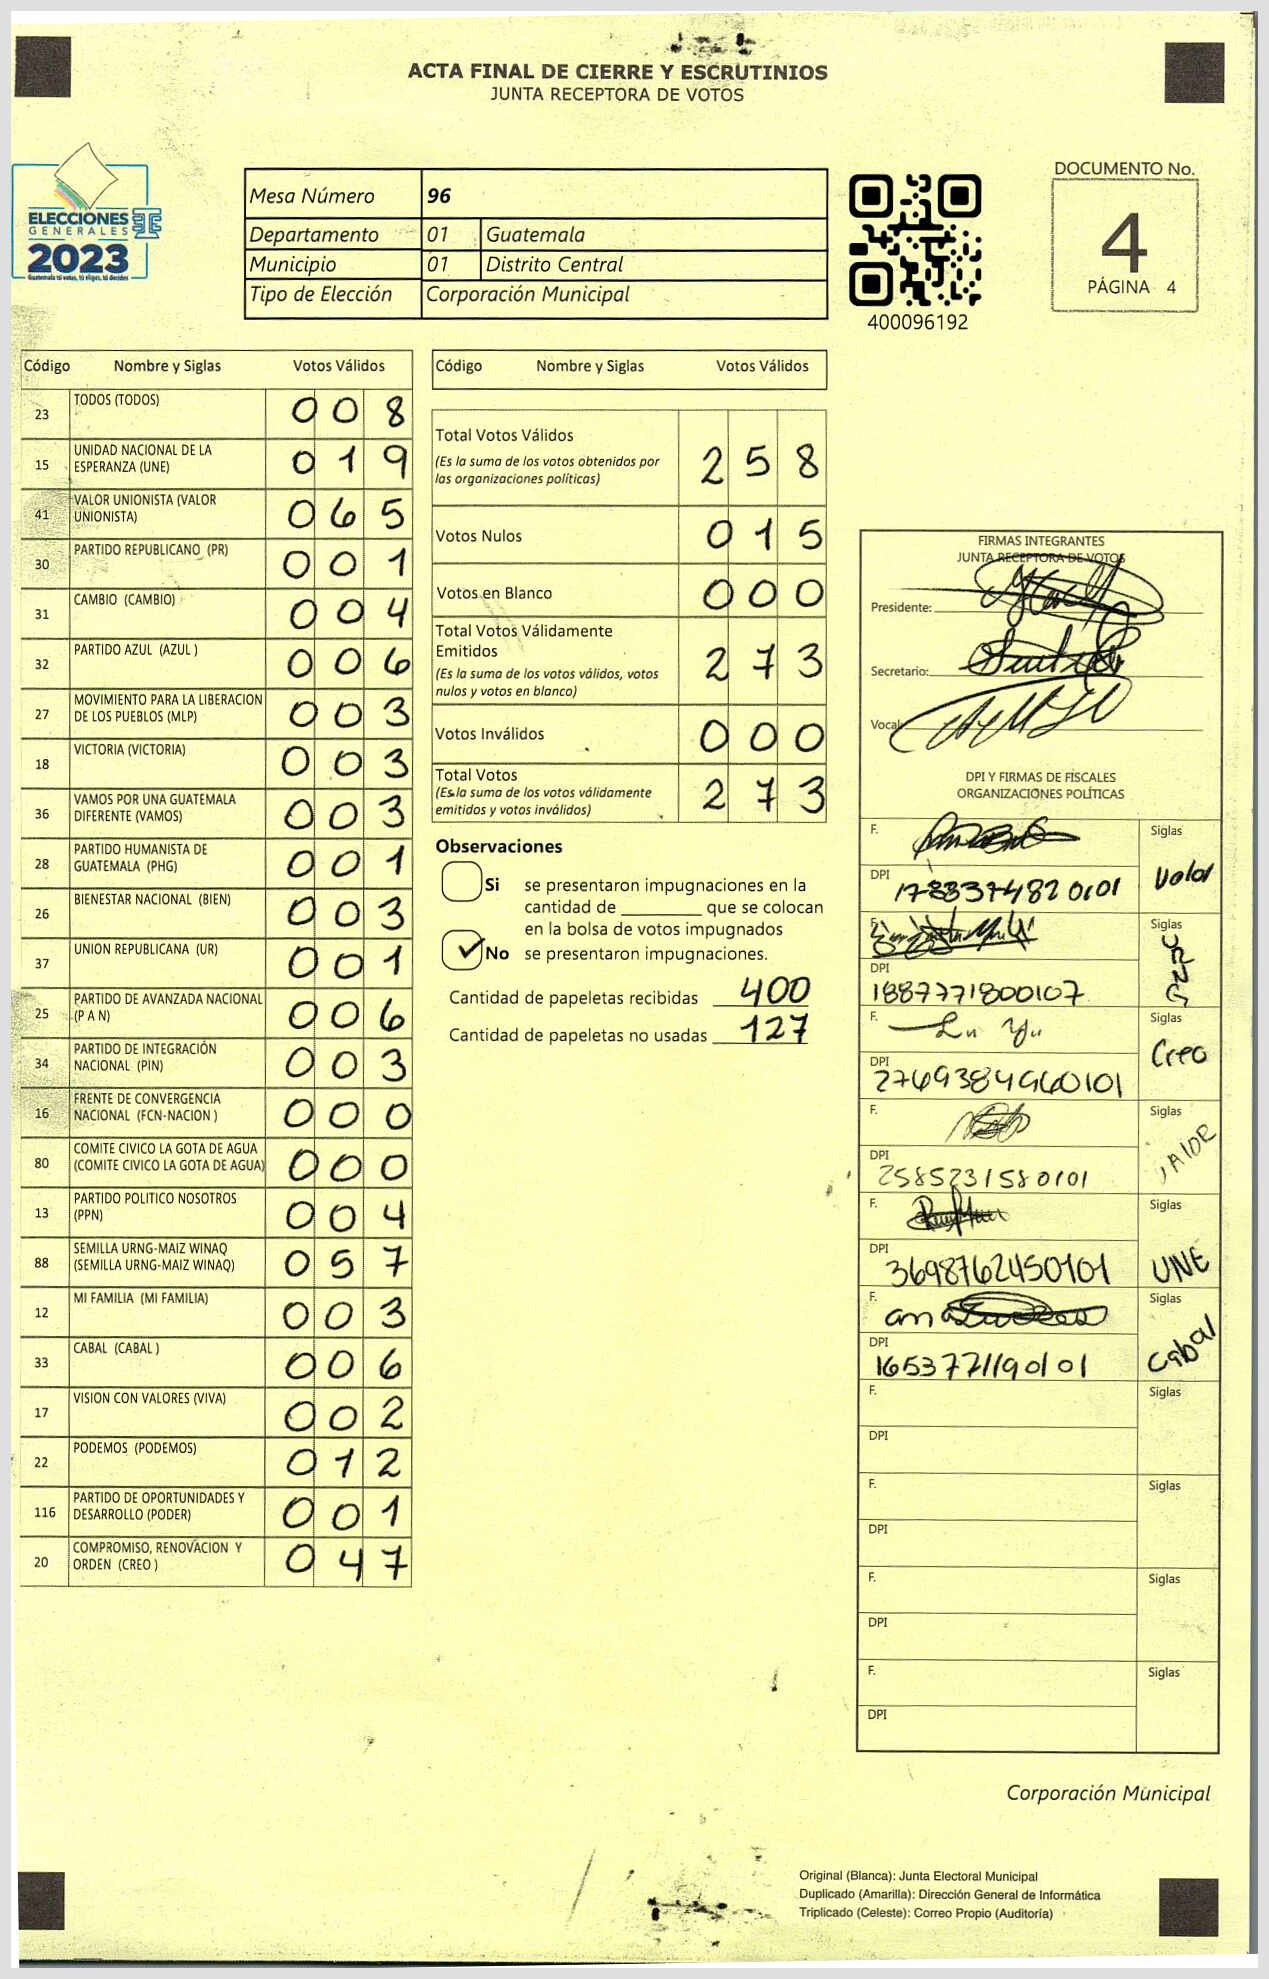 ACTA FINAL DE CIERRE Y ESCRUTINIOS
JUNTA RECEPTORA DE VOTOS
ELECCIONES
GENERALES
2023
Guatemala tú votas, tú eliges, tú decides
Mesa Número 96
Departamento 01 Guatemala
Municipio 01 Distrito Central
Tipo de Elección Corporación Municipal
400096192
DOCUMENTO No.
4
PÁGINA 4
Código Nombre y Siglas Votos Válidos
23 TODOS (TODOS) 008
15 UNIDAD NACIONAL DE LA
ESPERANZA (UNE) 019
41 VALOR UNIONISTA (VALOR
UNIONISTA) 065
30 PARTIDO REPUBLICANO (PR) 001
31 CAMBIO (CAMBIO) 004
32 PARTIDO AZUL (AZUL ) 006
27 MOVIMIENTO PARA LA LIBERACION
DE LOS PUEBLOS (MLP) 003
18 VICTORIA (VICTORIA) 003
36 VAMOS POR UNA GUATEMALA
DIFERENTE (VAMOS) 003
28 PARTIDO HUMANISTA DE
GUATEMALA (PHG) 001
26 BIENESTAR NACIONAL (BIEN) 003
37 UNION REPUBLICANA (UR) 001
25 PARTIDO DE AVANZADA NACIONAL
(P A N) 006
34 PARTIDO DE INTEGRACIÓN
NACIONAL (PIN) 003
16 FRENTE DE CONVERGENCIA
NACIONAL (FCN-NACION ) 000
80 COMITE CIVICO LA GOTA DE AGUA
(COMITE CIVICO LA GOTA DE AGUA) 000
13 PARTIDO POLITICO NOSOTROS
(PPN) 004
88 SEMILLA URNG-MAIZ WINAQ
(SEMILLA URNG-MAIZ WINAQ) 057
12 MI FAMILIA (MI FAMILIA) 003
33 CABAL (CABAL ) 006
17 VISION CON VALORES (VIVA) 002
22 PODEMOS (PODEMOS) 012
116 PARTIDO DE OPORTUNIDADES Y
DESARROLLO (PODER) 001
20 COMPROMISO, RENOVACION Y
ORDEN (CREO ) 047
Código Nombre y Siglas Votos Válidos
Total Votos Válidos 258
(Es la suma de los votos obtenidos por
las organizaciones políticas)
Votos Nulos 015
Votos en Blanco 000
Total Votos Válidamente
Emitidos 273
(Es la suma de los votos válidos, votos
nulos y votos en blanco)
Votos Inválidos 000
Total Votos 273
(Es la suma de los votos válidamente
emitidos y votos inválidos)
Observaciones
Si se presentaron impugnaciones en la
cantidad de ________ que se colocan
en la bolsa de votos impugnados
No se presentaron impugnaciones.
Cantidad de papeletas recibidas 400
Cantidad de papeletas no usadas 127
FIRMAS INTEGRANTES
JUNTA RECEPTORA DE VOTOS
Presidente:
Secretario:
Vocal:
DPI Y FIRMAS DE FISCALES
ORGANIZACIONES POLÍTICAS
F. Siglas
DPI 1783374820101 Valor
F. Siglas
DPI 1887771800107
F. Siglas
DPI 2769384960101 Creo
F. Siglas
DPI 2585231580101 VALOR
F. Siglas
DPI 3698762450101 UNE
F. Siglas
DPI 1653771190101 Cabal
F. Siglas
DPI
F. Siglas
DPI
F. Siglas
DPI
F. Siglas
DPI
Corporación Municipal
Original (Blanca): Junta Electoral Municipal
Duplicado (Amarilla): Dirección General de Informática
Triplicado (Celeste): Correo Propio (Auditoría)